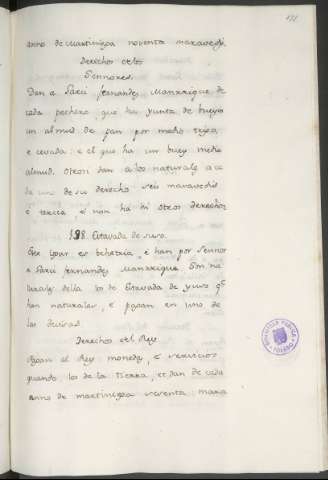 anno de Martiniega noventa maravedis
Derechos de los
Sennores.
Dan a Garci fernandez Manrrique de
cada pechero que ha yunta de bueyes
un almud de pan por medio trigo,
e cevada: e el que ha un buey medio
almud. Otrosi dan a los naturales a ca
da uno de su derecho seis maravedis
e tercia, e non ha hi otros derechos
198. Estavada de suso.
Este logar es behetria, e han por Sennor
a Garci fernandez Manrrique. E son na
turales della los de Estavada de yuso que
han naturales, e pagan en uno de
las devisas.
Derechos del Rey
Pagan al Rey moneda, e servicios
quando los de la tierra, et dan de cada
anno de martiniega setenta mara
BIBLIOTECA PUBLICA
TOLEDO